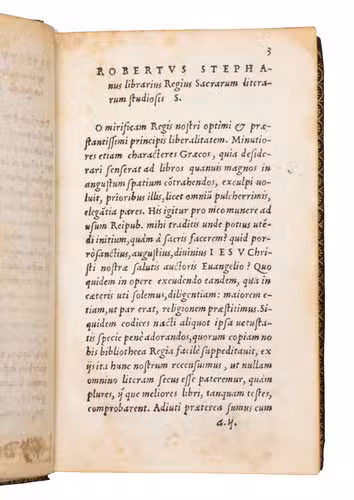 3
ROBERTVS STEPHA-
nus librarius Regius Sacrarum literarum
rum studiosis S.
O mirificam Regis nostri optimi & præ-
stantissimi principis liberalitatem. Minutio-
res etiam characteres Græcos, quia deside-
rari senserat ad libros quamuis magnos in
angustum spatium cõtrahendos, exculpi uo-
luit, prioribus illis, licet omniũ pulcherrimis,
elegãtia pares. His igitur pro meo munere ad
usum Reipub. mihi traditis unde potius utẽ-
di initium, quàm à sacris facerem? quid por-
rò sanctius, augustius, diuinius IESV Chri-
sti nostræ salutis auctoris Euangelio? Quo
quidem in opere excudendo eandem, qua in
cæteris uti solemus, diligentiam: maiorem e-
tiam, ut par erat, religionem præstitimus. Si-
quidem codices nacti aliquot ipsa uetusta-
tis specie penè adorandos, quorum copiam no
bis bibliotheca Regia facilè suppeditauit, ex
ijs ita hunc nostrum recensuimus, ut nullam
omnino literam secus esse pateremur, quàm
plures, ij que meliores libri, tanquam testes,
comprobarent. Adiuti præterea sumus cum
a.ij.